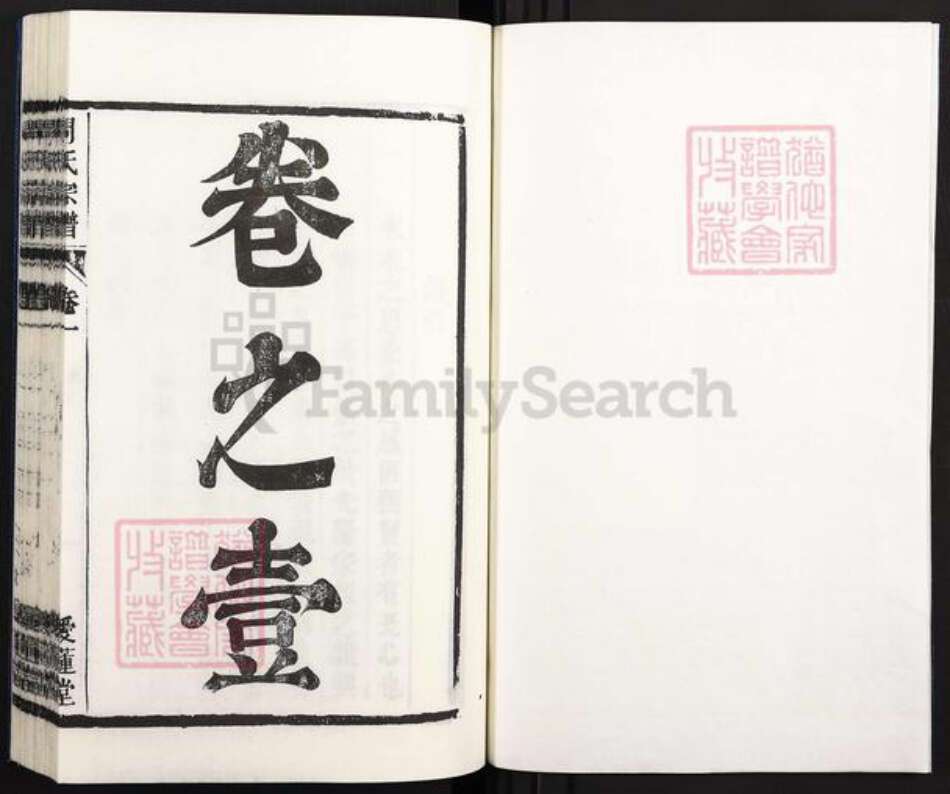 猶他家
譜學會
收藏
卷之壹
氏宗譜
卷一
愛蓮堂
猶
譜學會
收藏
FamilySearch